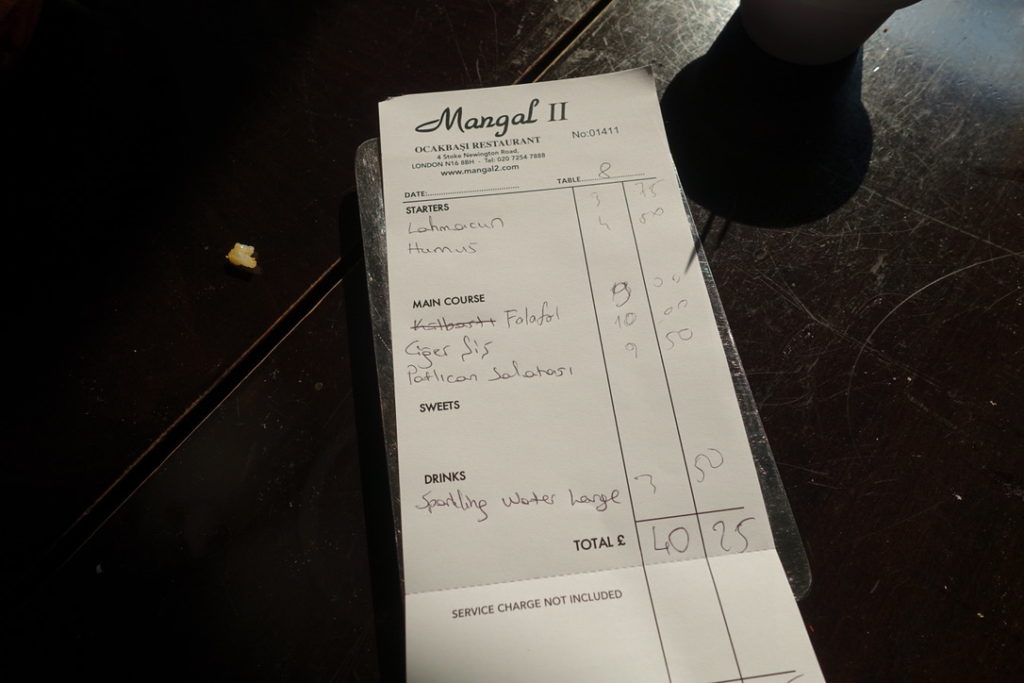 Mangal II
OCAKBAŞI RESTAURANT No:01411
4 Stoke Newington Road,
LONDON N16 8BH - Tel: 020 7254 7888
www.mangal2.com
DATE: TABLE 8
STARTERS 3 75
Lahmacun 4 50
Humus
MAIN COURSE 9 00
Kalbasti Falafel 10 00
Ciğer Şiş 9 50
Patlican Salatasi
SWEETS
DRINKS
Sparkling Water Large 3 50
TOTAL £ 40 25
SERVICE CHARGE NOT INCLUDED